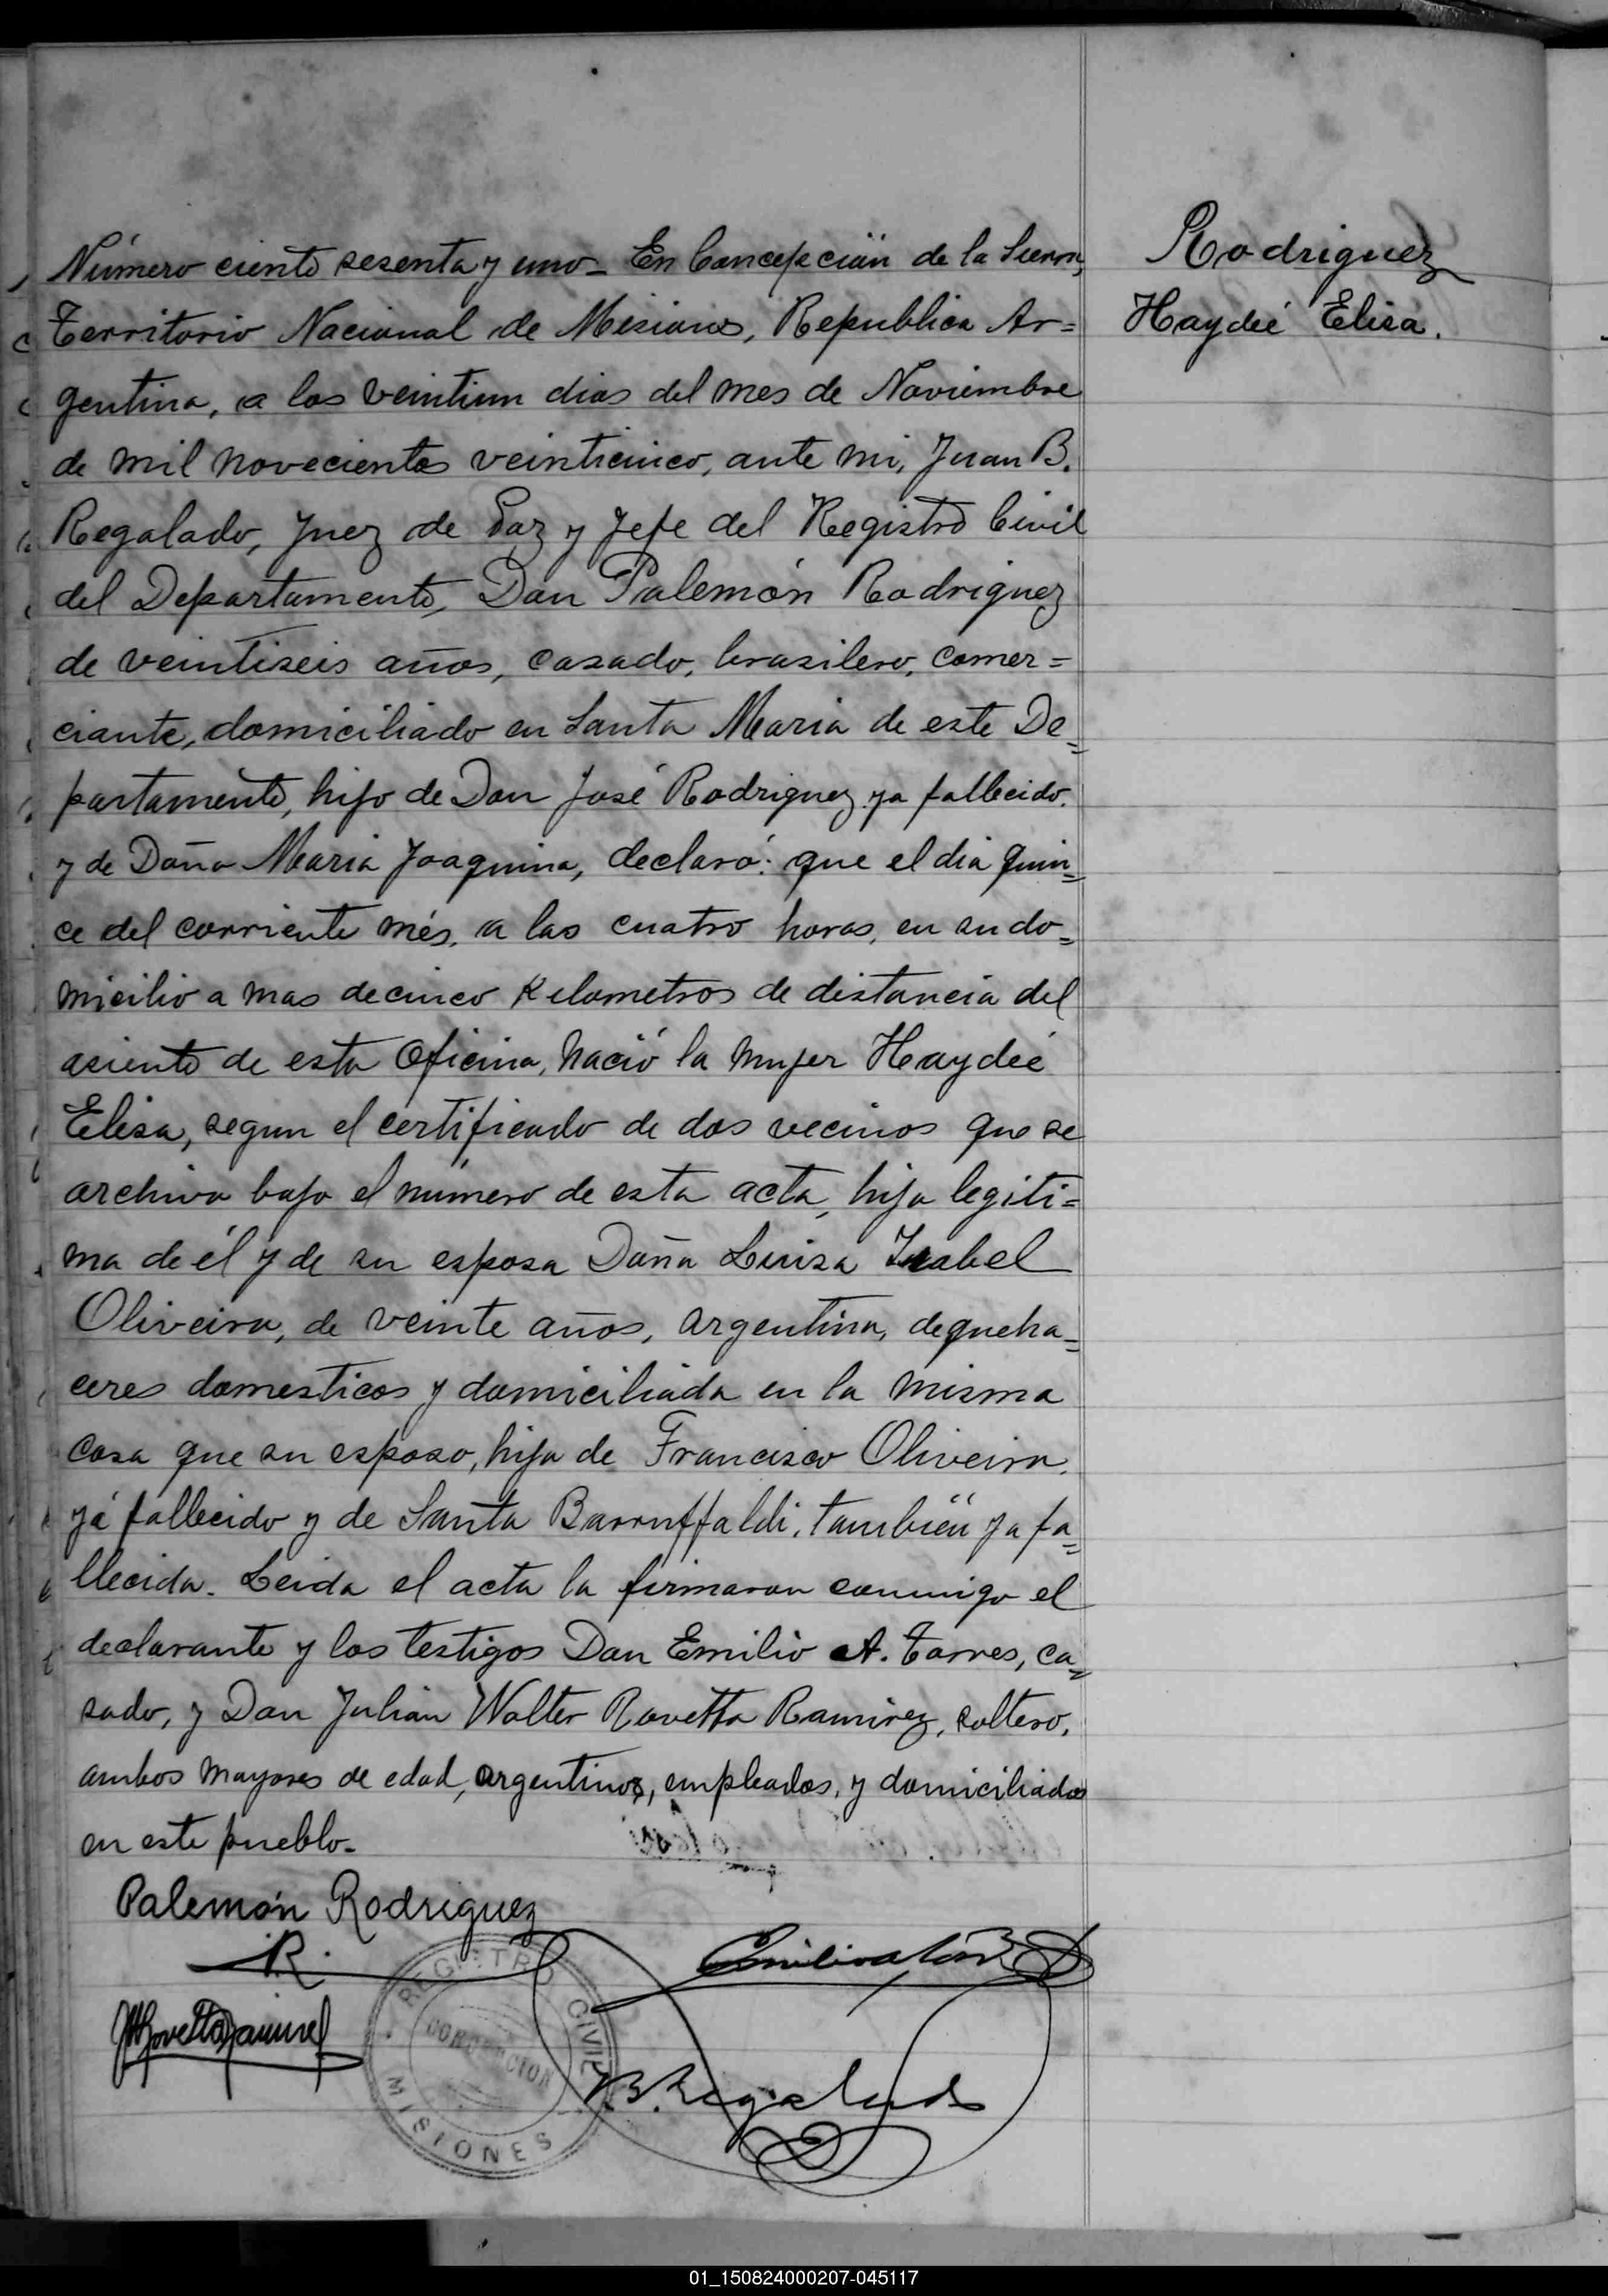 Rodriguez
Haydeé Elisa.
Número ciento sesenta y uno_ En Concepción de la Sierra,
Territorio Nacional de Misiones, Republica Ar=
gentina, a los veintiun dias del mes de Noviembre
de mil novecientos veinticinco, ante mi, Juan B.
Regalado, Juez de Paz y Jefe del Registro Civil
del Departamento, Don Palemón Rodriguez
de veintiseis años, casado, brasilero, comer=
ciante, domiciliado en Santa Maria de este De=
partamento, hijo de Don José Rodriguez ya fallecido.
y de Doña Maria Joaquina, declaró: que el dia quin=
ce del corriente més, a las cuatro horas, en su do=
micilio a mas de cinco Kilometros de distancia del
asiento de esta Oficina, nació la mujer Haydeé
Elisa, segun el certificado de dos vecinos que se
archiva bajo el número de esta acta, hija legiti=
ma de él y de su esposa Doña Luisa Isabel
Oliveira, de veinte años, argentina, de queha=
ceres domesticos y domiciliada en la misma
casa que su esposo, hija de Francisco Oliveira,
yá fallecido y de Santa Barruffaldi, también ya fa=
llecida. Leida el acta la firmaron conmigo el
declarante y los testigos Don Emilio A. Torres, ca=
sado, y Don Julián Walter Rovetta Ramirez, soltero,
ambos mayores de edad, argentinos, empleados, y domiciliados
en este pueblo.
Palemón Rodriguez
R.
B. Regalado
REGISTRO CIVIL
CONCEPCION
MISIONES
01_150824000207-045117